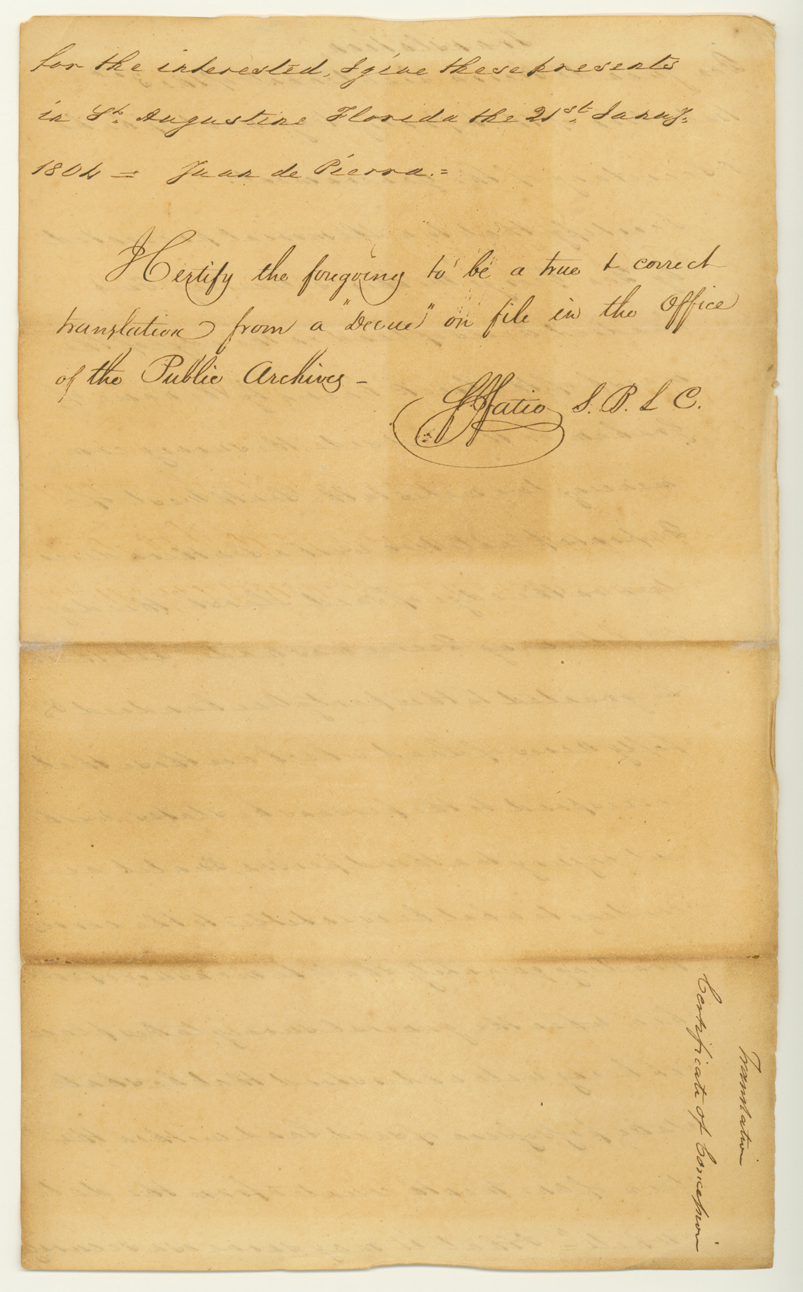 for the interested, I give these presents
in St. Augustine Florida the 21st. Jany.
1804 = Juan de Pierra.=
I Certify the foregoing to be a true & correct
translation from a "Decree" on file in the Office
of the Public Archives –
F J Fatio S. P. L C.
Translation
Certificate of Concession